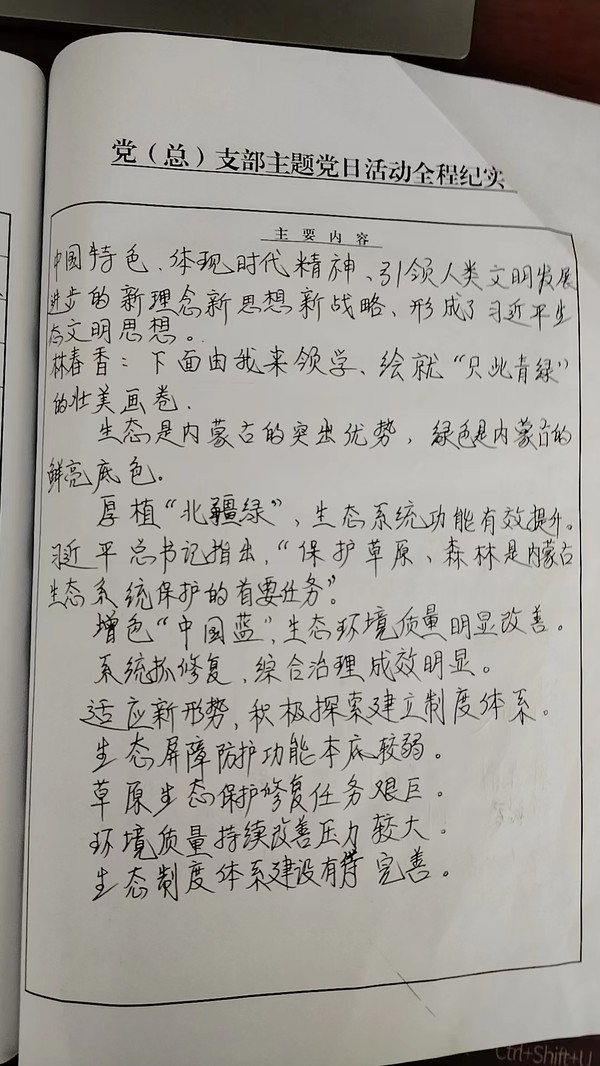 党（总）支部主题党日活动全程纪实
主要内容
中国特色、体现时代精神、引领人类文明发展
进步的新理念新思想新战略、形成了习近平生
态文明思想。
林春香：下面由我来领学、绘就“只此青绿”
的壮美画卷.
生态是内蒙古的突出优势，绿色是内蒙古的
鲜亮底色。
厚植“北疆绿”、生态系统功能有效提升。
习近平总书记指出，“保护草原、森林是内蒙古
生态系统保护的首要任务”。
增色“中国蓝”，生态环境质量明显改善。
系统抓修复，综合治理成效明显。
适应新形势，积极探索建立制度体系。
生态屏障防护功能本底较弱。
草原生态保护修复任务艰巨。
环境质量持续改善压力较大。
生态制度体系建设有待完善。
Ctrl+Shift+U